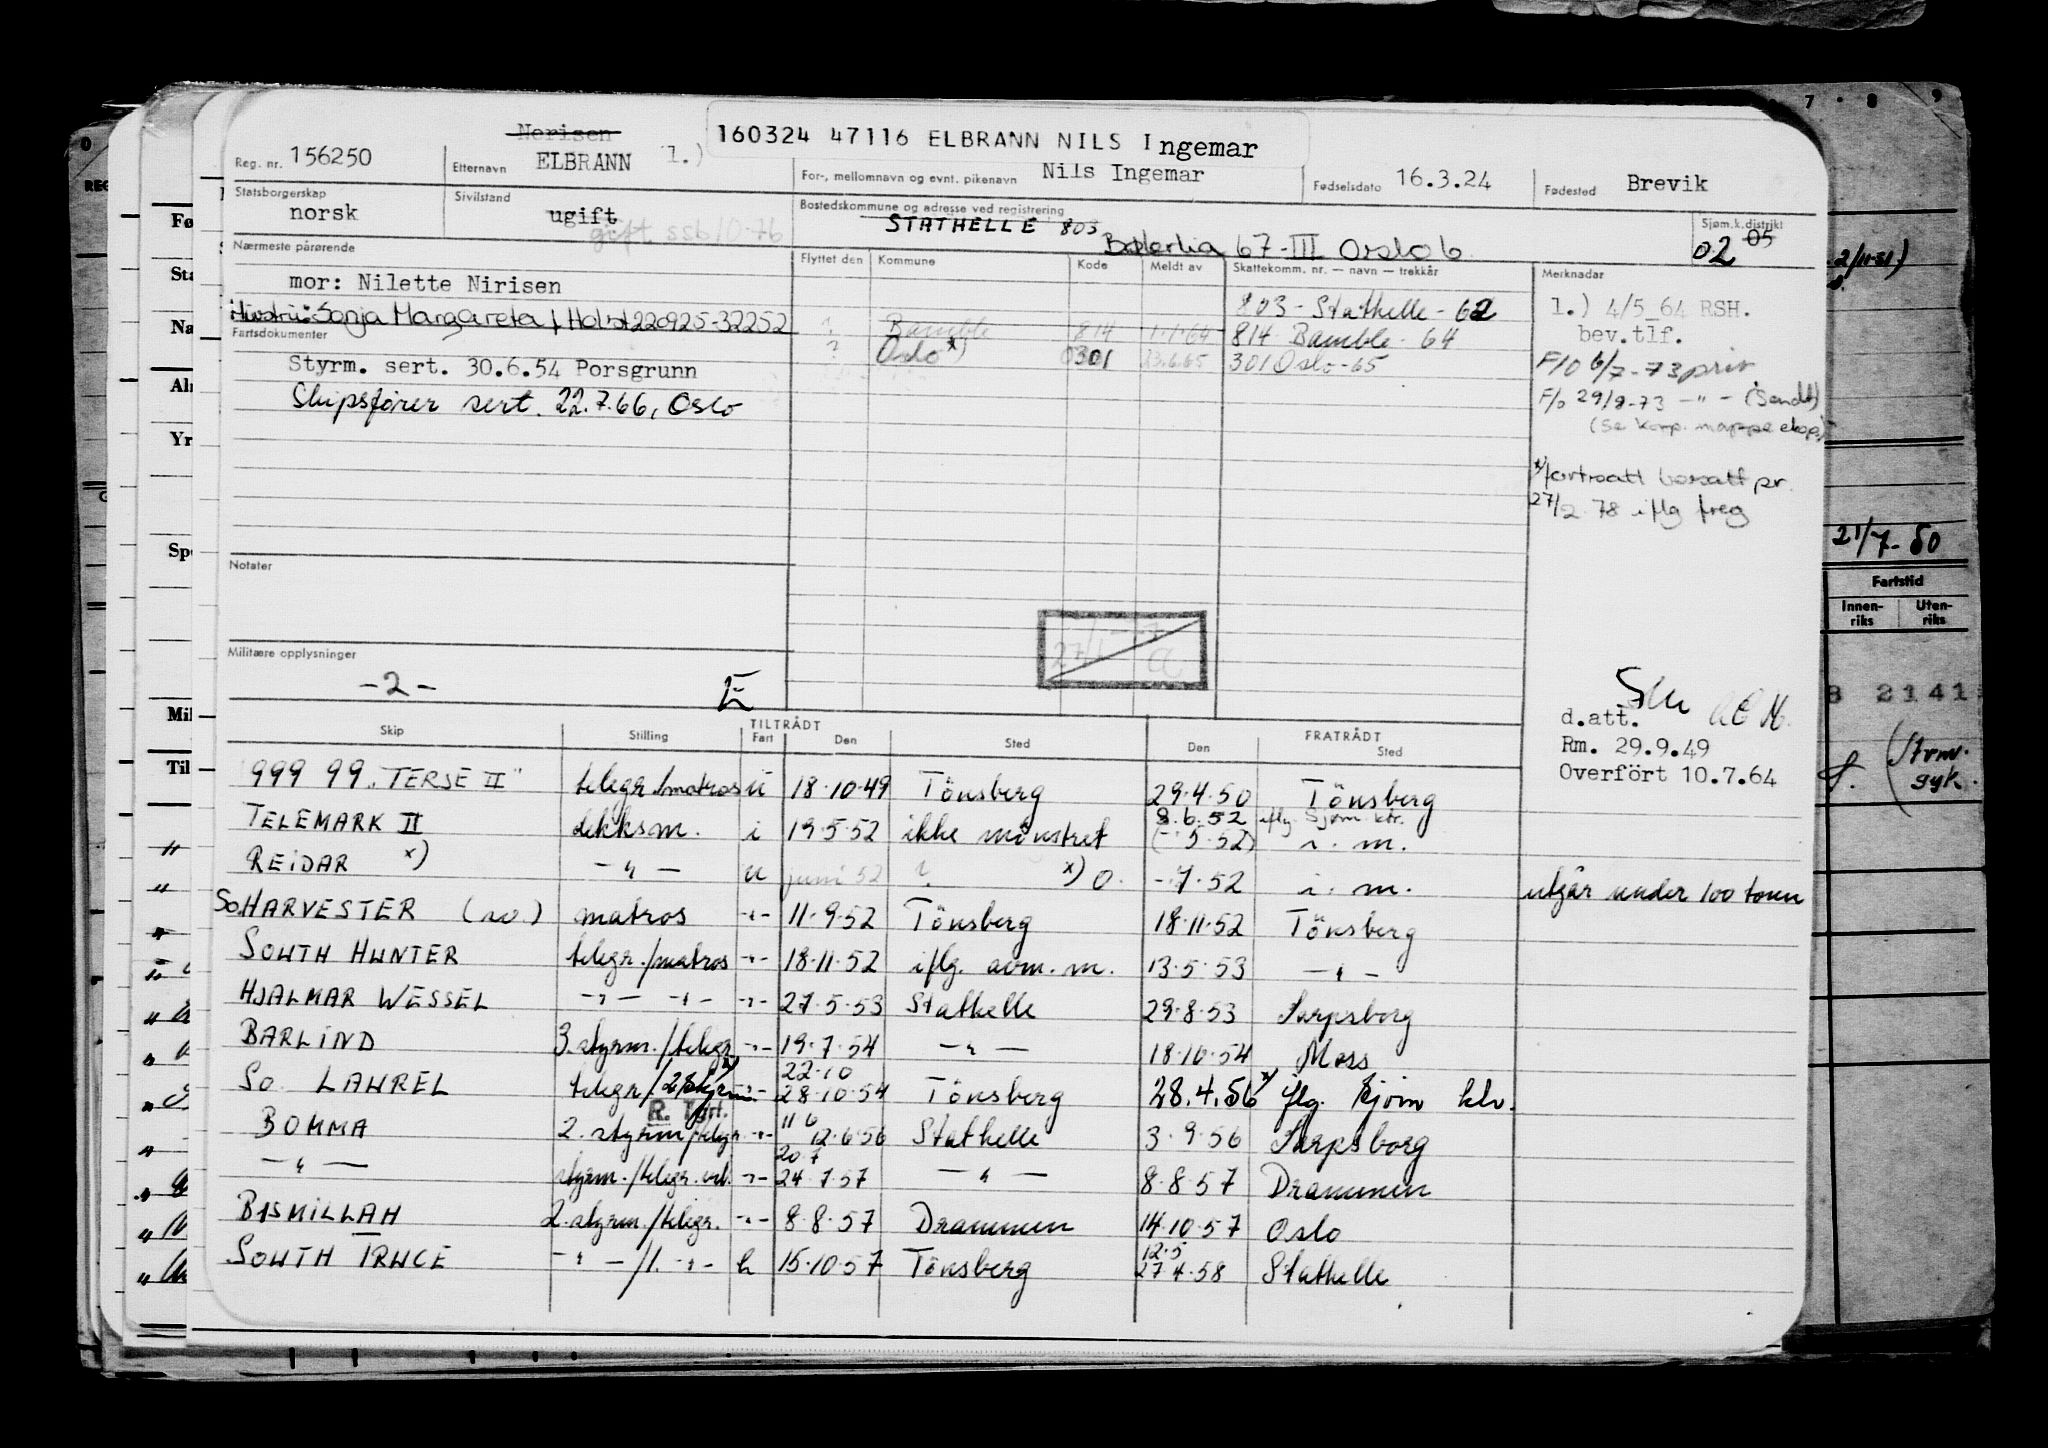 Norisen
160324 47116 ELBRANN NILS Ingemar
Reg. nr. 156250 Etternavn ELBRANN 1.) For-, mellomnavn og evnt. pikenavn Nils Ingemar Fødselsdato 16.3.24 Fødested Brevik
Statsborgerskap norsk Sivilstand ugift Bostedskommune og adresse ved registrering STATHELLE 803 Sjøm.k.distrikt 05
gift ssb 10-76 67-III Oslo 6 02
Nærmeste pårørende Flyttet den Kommune Kode Meldt av Skattekomm. nr. — navn — trekkår Merknader
mor: Nilette Nirisen 803 - Stathelle - 62 1.) 4/5_64 RSH.
Hustru: Sonja Margareta f. Holst 220925-32252 ? Bamble 814 1.1.64 814 Bamble - 64 bev.tlf.
Fartsdokumenter ? Oslo x) 0301 23.6.65 301 Oslo - 65 F/O 6/7-73 priv
Styrm. sert. 30.6.54 Porsgrunn
Skipsfører sert. 22.7.66, Oslo F/o 29/8-73 - " - (Sendt)
(se korp. mappe eksp.)
x) fortsatt bosatt pr.
27/2.78 iflg freg
Notater
27/
a
Militære opplysninger
-2- E
d.att.
Rm. 29.9.49
Overfört 10.7.64
Skip Stilling TILTRÅDT Fart Den Sted FRATRÅDT Den Sted
999 99 "TERJE II" telegr./matros u 18.10.49 Tönsberg 29.4.50 Tönsberg
TELEMARK II dekksm. i 19.5.52 ikke mönstret 8.6.52 iflg. Sjøm. ktr. (- 5.52) i. m.
REIDAR x) - " - u juni 52 ? x) 0. -.7.52 i. m. utgår under 100 tonn
So. HARVESTER (so.) matros -"- 11.9.52 Tönsberg 18.11.52 Tönsberg
SOUTH HUNTER telegr./matros -"- 18.11.52 iflg. avm. m. 13.5.53 - " -
HJALMAR WESSEL - " - - " - -"- 27.5.53 Stathelle 29.8.53 Sarpsborg
BARLIND 3. styrm./telegr. -"- 19.7.54 - " - 18.10.54 Moss
22.10
So. LAUREL telegr./2 styrm. -"- 28.10.54 Tönsberg 28.4.56 x) iflg. Sjøm ktr.
11 6
BOMMA 2. styrm/telegr. -"- 12.6.56 Stathelle 3.9.56 Sarpsborg
20 7
- " - styrm./telegr. -"- 24.7.57 - " - 8.8.57 Drammen
BISMILLAH 2. styrm./telegr. -"- 8.8.57 Drammen 14.10.57 Oslo
12.5
SOUTH TRUCE - " - /1. -"- h 15.10.57 Tönsberg 27.4.58 Stathelle
7 8 9
21/7-50
Fartstid
Innen-riks Uten-riks
8 2141
Fø
Sta
Na
Al
Yr
Sp
Mil
Til